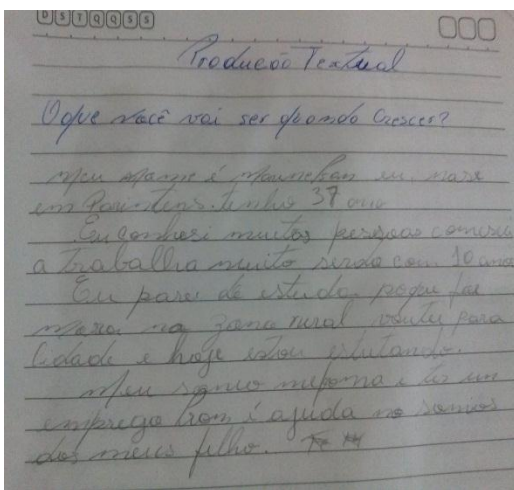 D S T Q Q S S
Producão Textual
O que você vai ser quando Crescer?
meu nome é eu more
em Parintens. tenho 37 ano
Eu conhesi muitas pessoas comesei
a trabalha muito serdo com 10 ano
Eu parei de estuda poque fui
mora na zona rural voutei para
Cidade e hoje estou estutando.
meu sonho é ter um
emprego bom i ajuda no sonios
dos meus filho.